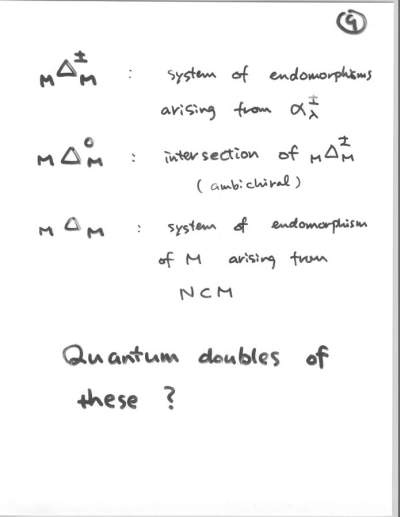 9
MΔ±M : system of endomorphisms
arising from α±λ
MΔ0M : intersection of MΔ±M
(ambichiral)
MΔM : system of endomorphism
of M arising from
N⊂M
Quantum doubles of
these ?